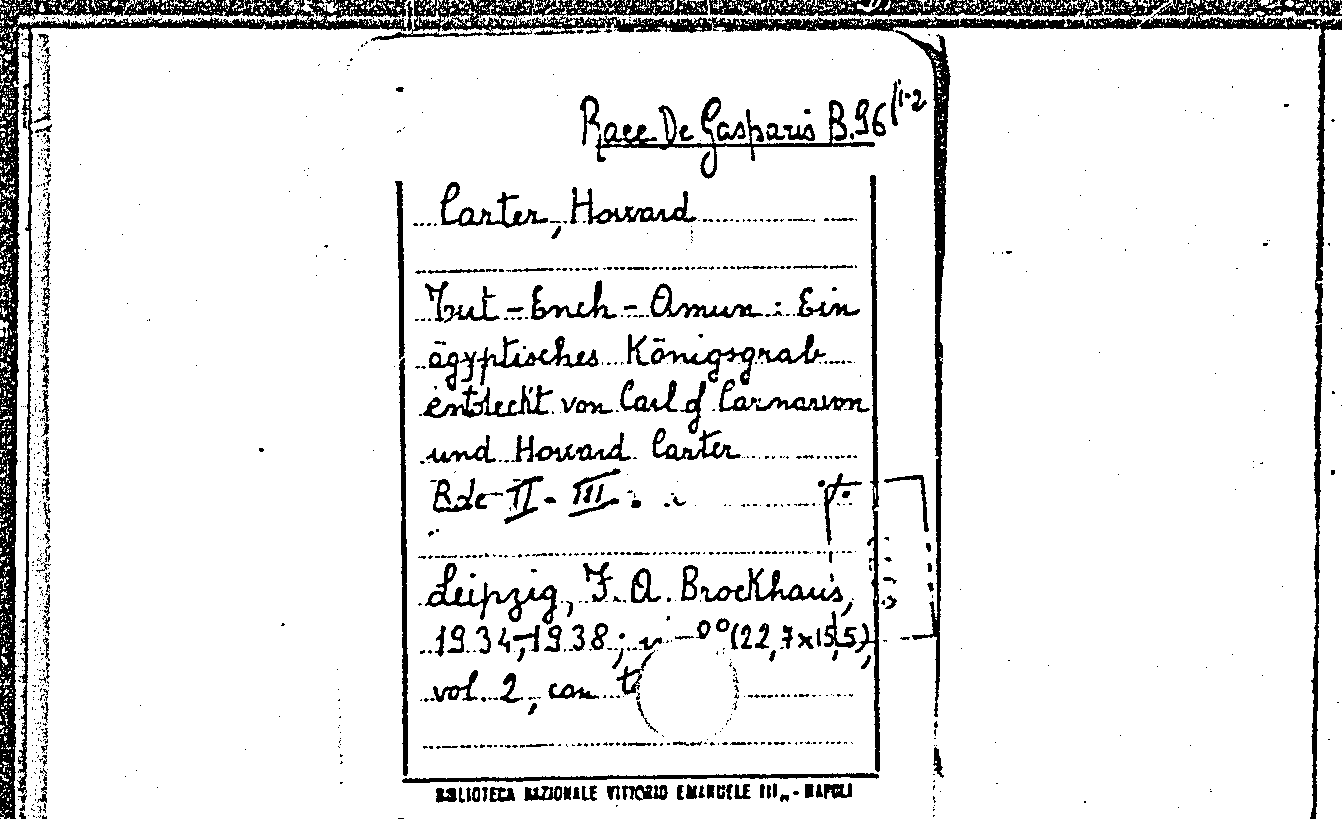 Racc. De Gasparis B.96 (1-2
Carter, Howard
Tut-Ench-Amun: Ein
ägyptisches Königsgrab
entdeckt von Carl of Carnarvon
und Howard Carter
Bde II-III.
./.
Leipzig, F. A. Brockhaus,
1934-1938; in-°° (22,7x15,5),
vol. 2, con
BIBLIOTECA NAZIONALE VITTORIO EMANUELE III„ - NAPOLI